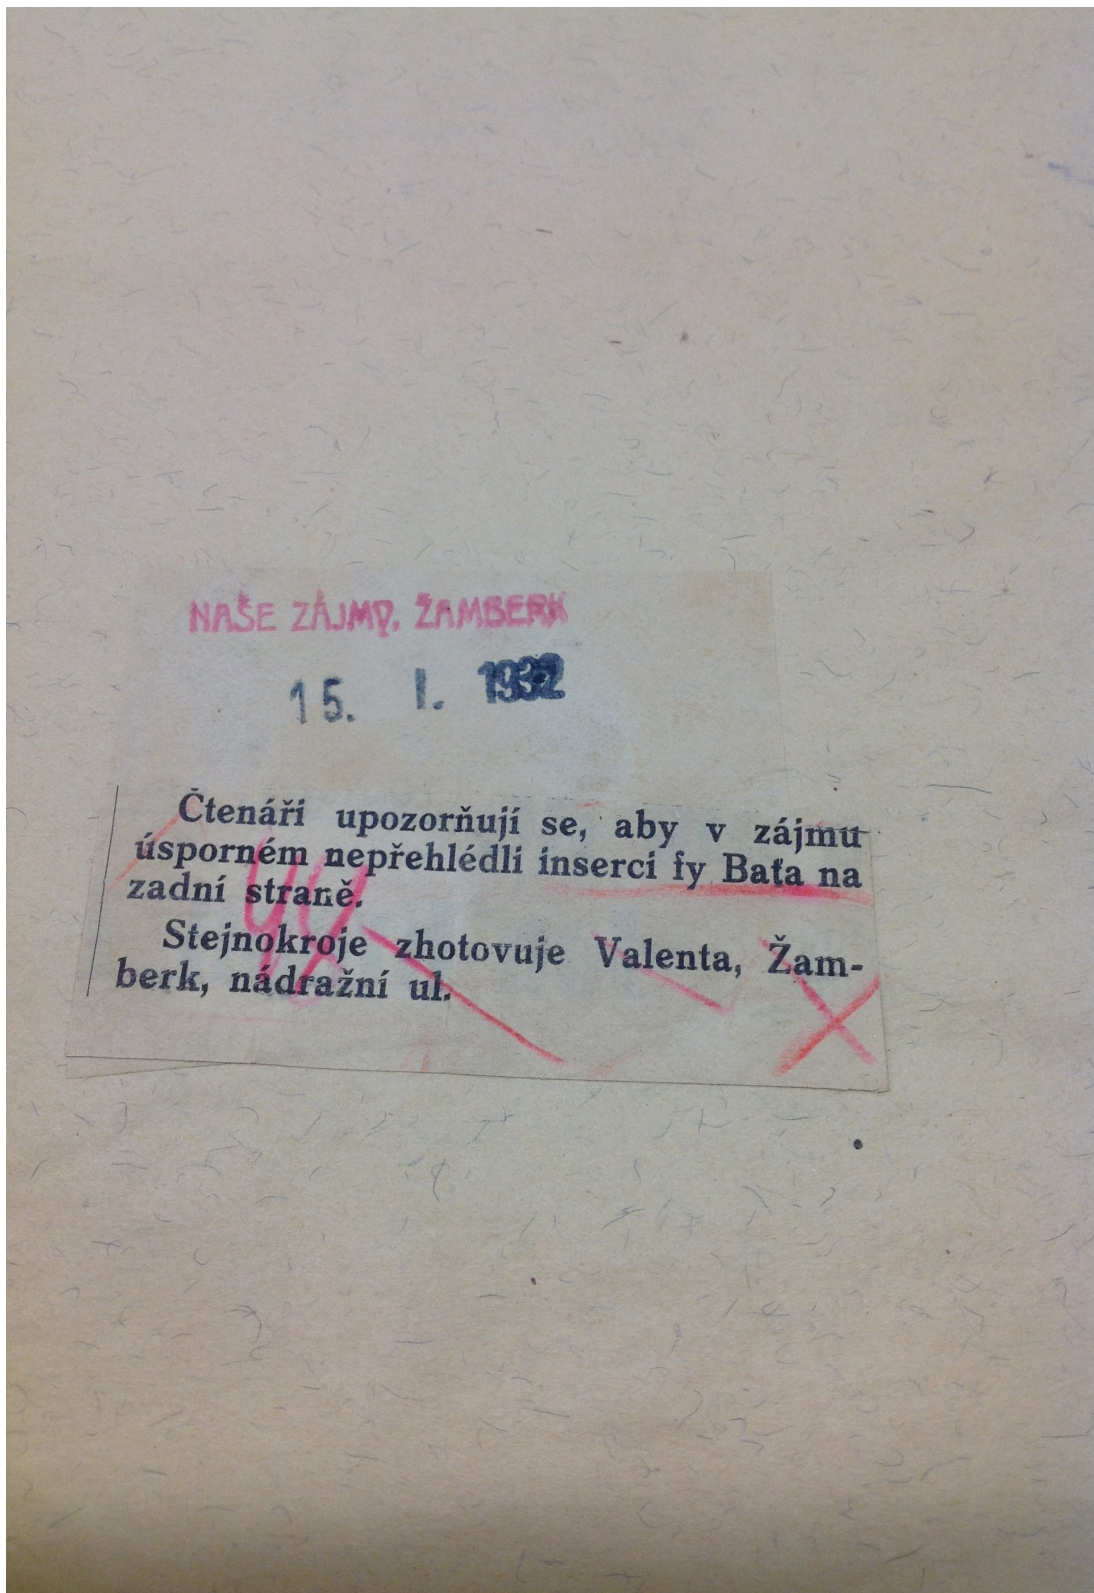 NAŠE ZÁJMP. ŽAMBERK
15. I. 1932
Čtenáři upozorňují se, aby v zájmu
úsporném nepřehlédli inserci fy Baťa na
zadní straně.
Stejnokroje zhotovuje Valenta, Žam-
berk, nádražní ul.